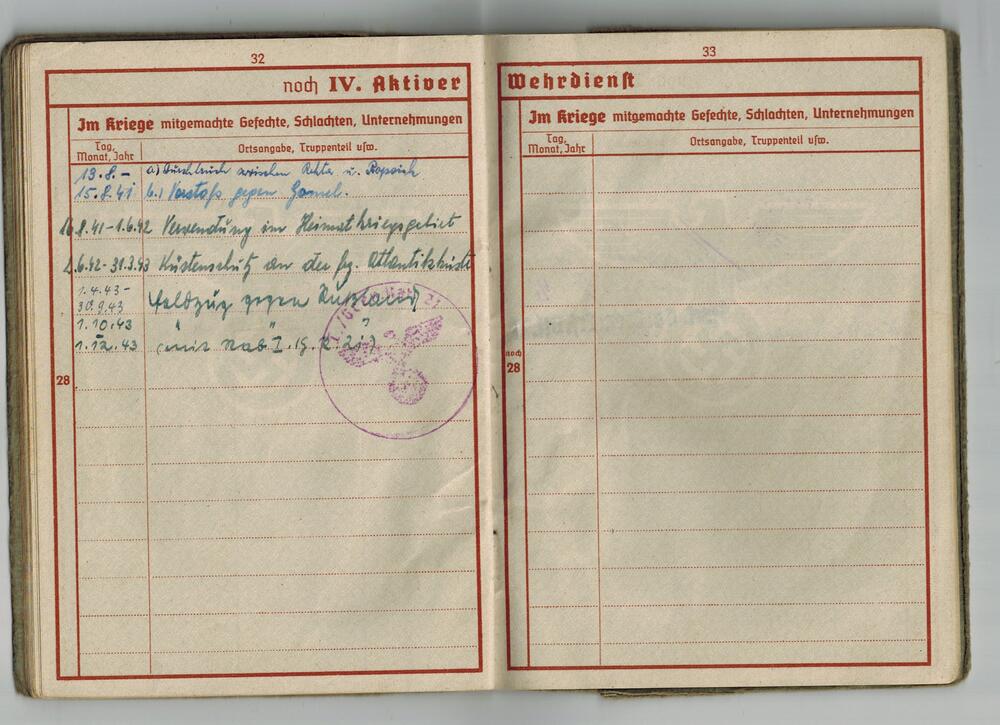 32
noch IV. Aktiver
Im Kriege mitgemachte Gefechte, Schlachten, Unternehmungen
Tag, Monat, Jahr
Ortsangabe, Truppenteil usw.
13.8. – a) Durchbruch zwischen Rekta u. Ropoich
15.8.41 b.) Vorstoß gegen Gomel.
16.8.41 – 1.6.42 Verwendung im Heimatkriegsgebiet
2.6.42 – 31.3.43 Küstenschutz an der frz. Atlantikküste
1.4.43 –
30.9.43 Feldzug gegen Rußland
1.10.43 " " "
1.12.43 (mit
28
33
Wehrdienst
Im Kriege mitgemachte Gefechte, Schlachten, Unternehmungen
Tag, Monat, Jahr
Ortsangabe, Truppenteil usw.
noch
28